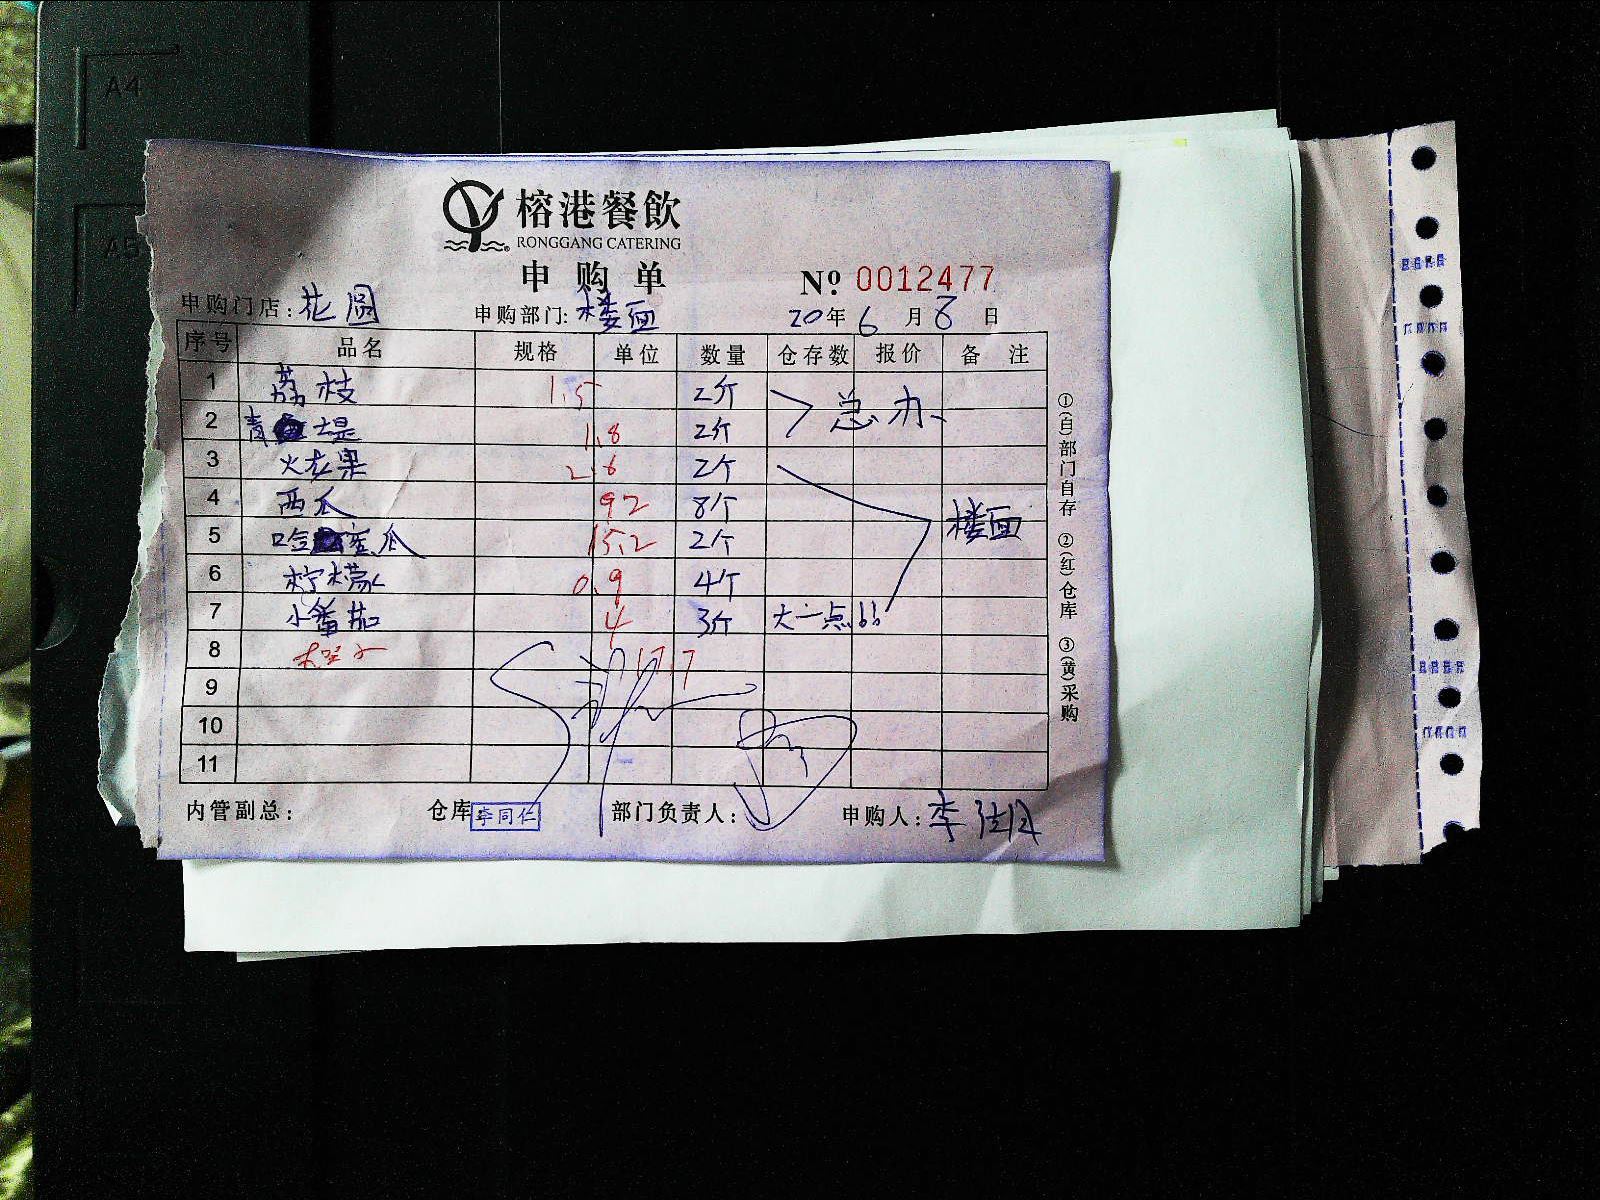 A4
A5
榕港餐飲
RONGGANG CATERING
申购单
№ 0012477
申购门店:花园 申购部门:楼面 20年6月8日
序号 品名 规格 单位 数量 仓存数 报价 备注
1 荔枝 1.5 2斤 总办
2 青提 1.8 2斤
3 火龙果 2.6 2个
4 西瓜 92 8个 楼面
5 哈密瓜 15.2 2个
6 柠檬 0.9 4个
7 小番茄 4 3斤 大一点!!
8 17.7
9
10
11
内管副总: 仓库 李同仁 部门负责人: 申购人:李
①(白)部门自存 ②(红)仓库 ③(黄)采购